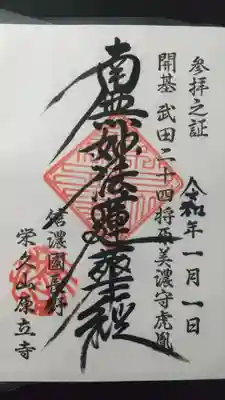 参拝之証
開基 武田二十四将原美濃守虎胤
令和年一月一日
南無妙法蓮華経
信濃國長野
栄久山康立寺